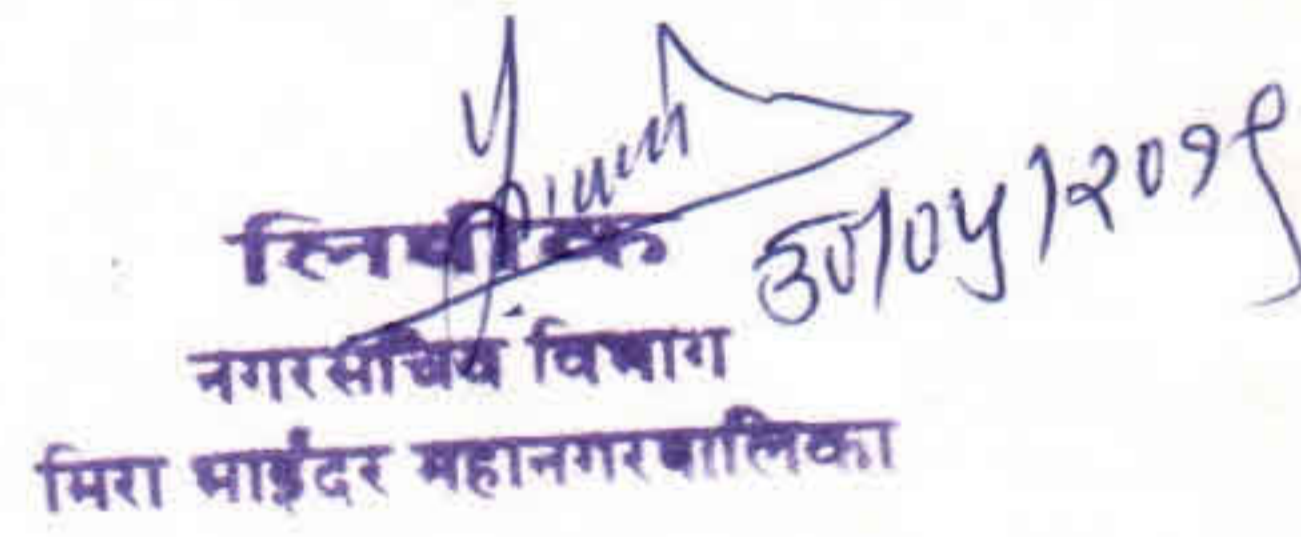 लिपीक
३०/०५/२०१९
नगरसचिव विभाग
मिरा भाईंदर महानगरपालिका